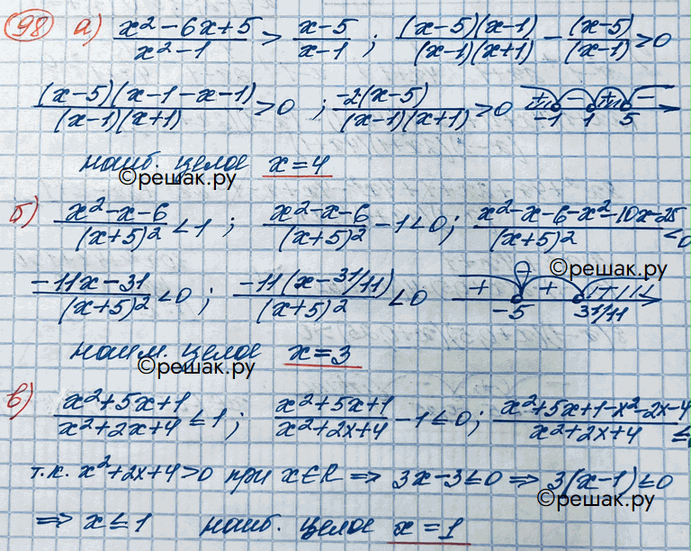 98 а) (x²-6x+5)/(x²-1) > (x-5)/(x-1) ; ((x-5)(x-1))/((x-1)(x+1)) - (x-5)/(x-1) > 0
((x-5)(x-1-x-1))/((x-1)(x+1)) > 0 ; (-2(x-5))/((x-1)(x+1)) > 0 + - + - -1 1 5
наиб. целое x=4
©решак.ру
б) (x²-x-6)/(x+5)² < 1 ; (x²-x-6)/(x+5)² - 1 < 0 ; (x²-x-6-x²-10x-25)/(x+5)² < 0
©решак.ру
(-11x-31)/(x+5)² < 0 ; (-11(x-31/11))/(x+5)² < 0 + + -5 31/11
наим. целое x=3
©решак.ру
в) (x²+5x+1)/(x²+2x+4) ≤ 1 ; (x²+5x+1)/(x²+2x+4) - 1 ≤ 0 ; (x²+5x+1-x²-2x-4)/(x²+2x+4) ≤
т.к. x²+2x+4>0 при x∈R ⇒ 3x-3≤0 ⇒ 3(x-1)≤0
©решак.ру
⇒ x≤1 наиб. целое x=1